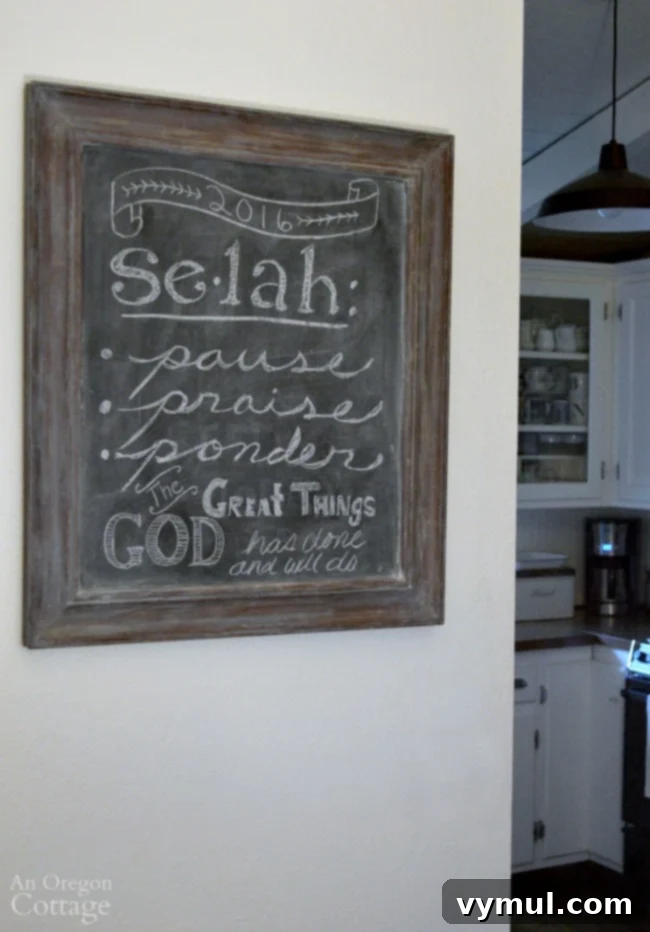 2016
se·lah:
• pause
• praise
• ponder
The GREAT THINGS
GOD has done
and will do
An Oregon
Cottage
vymul.com